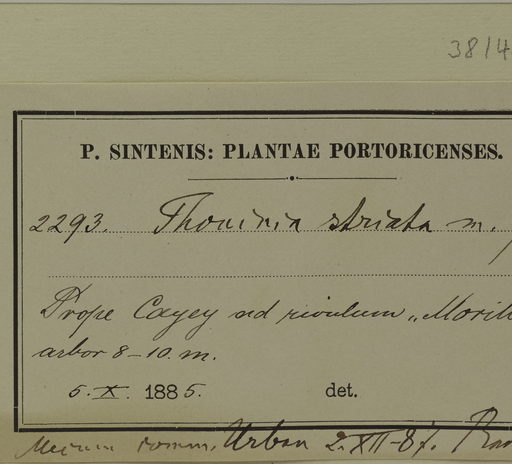 3814
P. SINTENIS: PLANTAE PORTORICENSES.
2293. Thouinia striata m.
Prope Cayey ad rivulum „Morill
arbor 8–10. m.
5. X. 1885. det.
comm. Urban 2. XII–87.